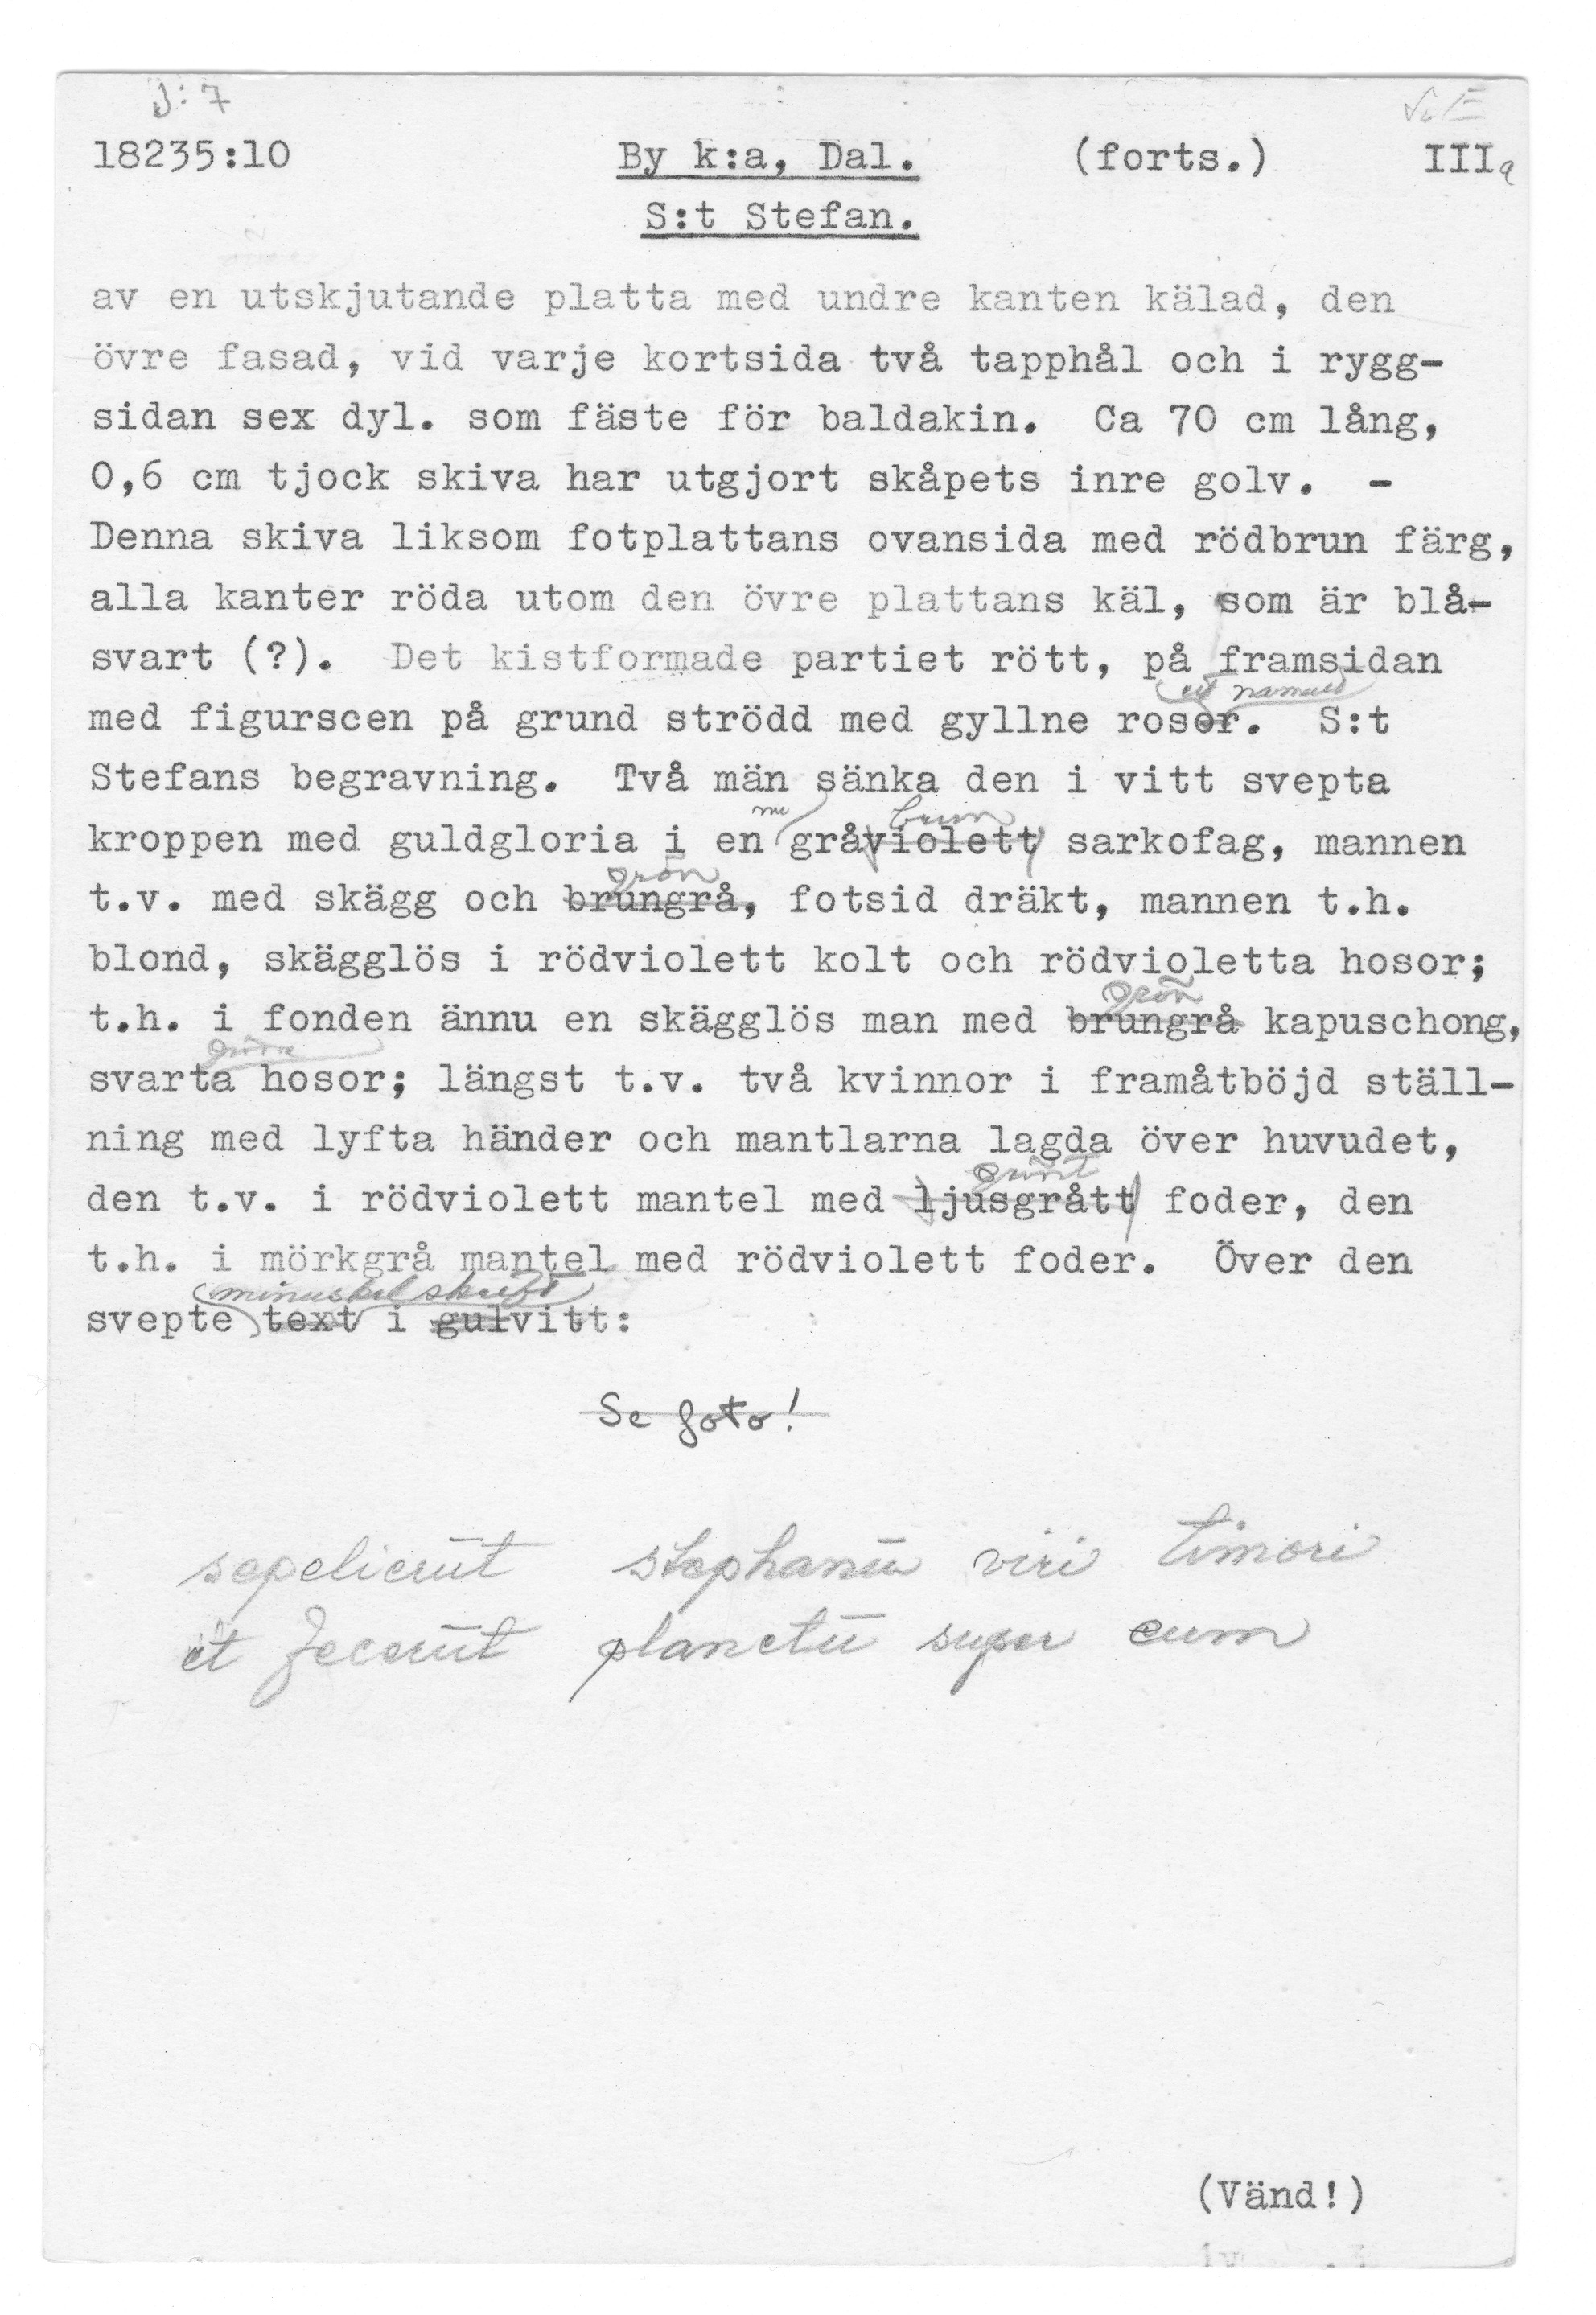 J:7
18235:10 By k:a, Dal. (forts.) IIIa
S:t Stefan.
av en utskjutande platta med undre kanten kälad, den
övre fasad, vid varje kortsida två tapphål och i rygg-
sidan sex dyl. som fäste för baldakin. Ca 70 cm lång,
0,6 cm tjock skiva har utgjort skåpets inre golv. -
Denna skiva liksom fotplattans ovansida med rödbrun färg,
alla kanter röda utom den övre plattans käl, som är blå-
svart (?). Det kistformade partiet rött, på framsidan
med figurscen på grund strödd med gyllne roser. S:t
Stefans begravning. Två män sänka den i vitt svepta
brun
kroppen med guldgloria i en gråviolett sarkofag, mannen
grön
t.v. med skägg och brungrå, fotsid dräkt, mannen t.h.
blond, skägglös i rödviolett kolt och rödvioletta hosor;
grön
t.h. i fonden ännu en skägglös man med brungrå kapuschong,
gröna
svarta hosor; längst t.v. två kvinnor i framåtböjd ställ-
ning med lyfta händer och mantlarna lagda över huvudet,
grönt
den t.v. i rödviolett mantel med ljusgrått foder, den
t.h. i mörkgrå mantel med rödviolett foder. Över den
minuskelskrift
svepte text i gulvitt:
Se foto!
sepelierūt stephanū viri timori
et fecerūt planctū super eum
(Vänd!)